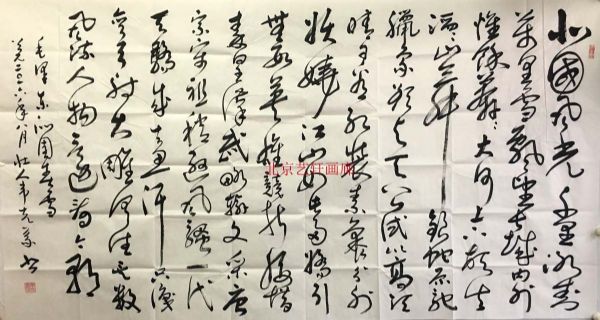 北國风光千里冰封
萬里雪飄望长城内外
惟馀莽莽大河上下顿失
滔滔山舞銀蛇原驰
蠟象欲与天公试比高须
晴日看红装素裹分外
妖娆江山如此多娇引
無数英雄競折腰惜
秦皇漢武略输文采唐
宗宋祖稍逊风騷一代
天驕成吉思汗只识
弯弓射大雕俱往矣数
风流人物还看今朝
毛泽东沁园春雪
六年八月 书
北京艺 画廊